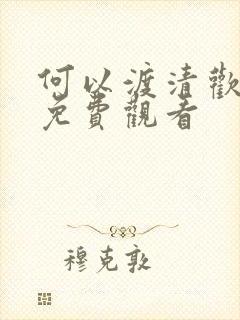 何以渡清歡
免費觀看
穆克敦